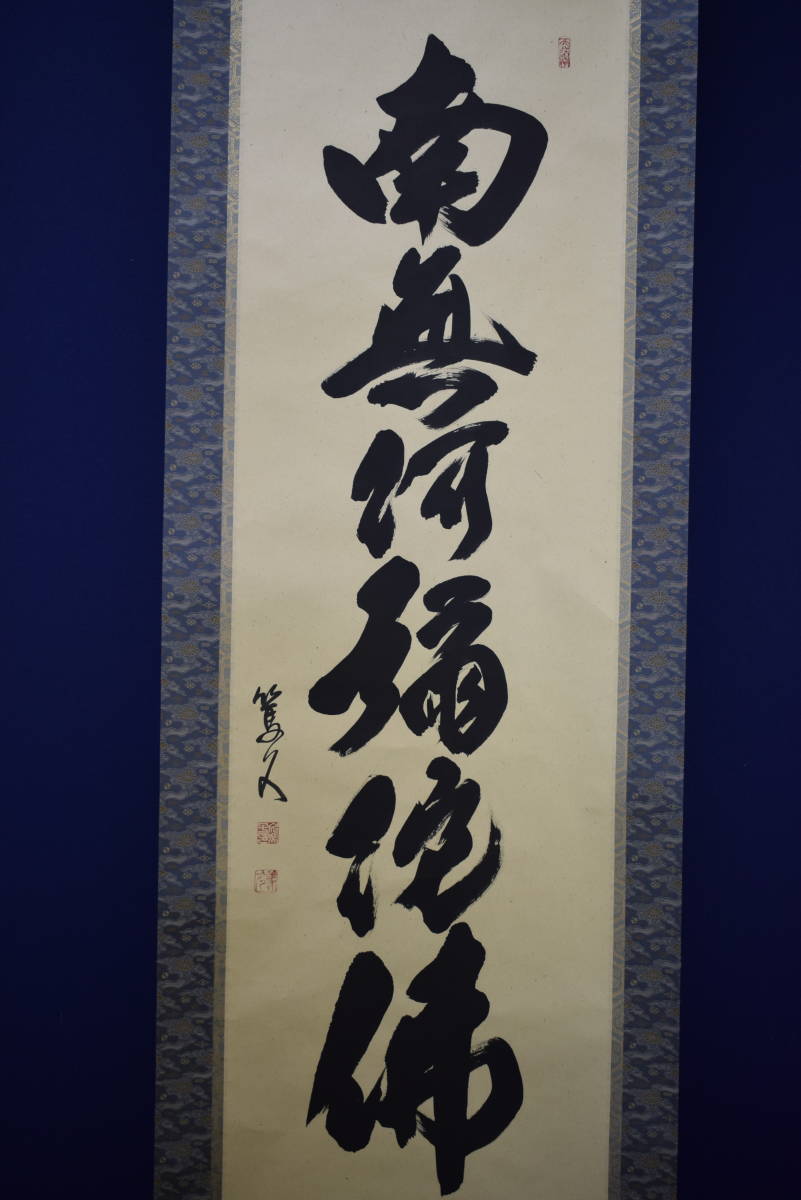 南無阿彌陀佛
篤久